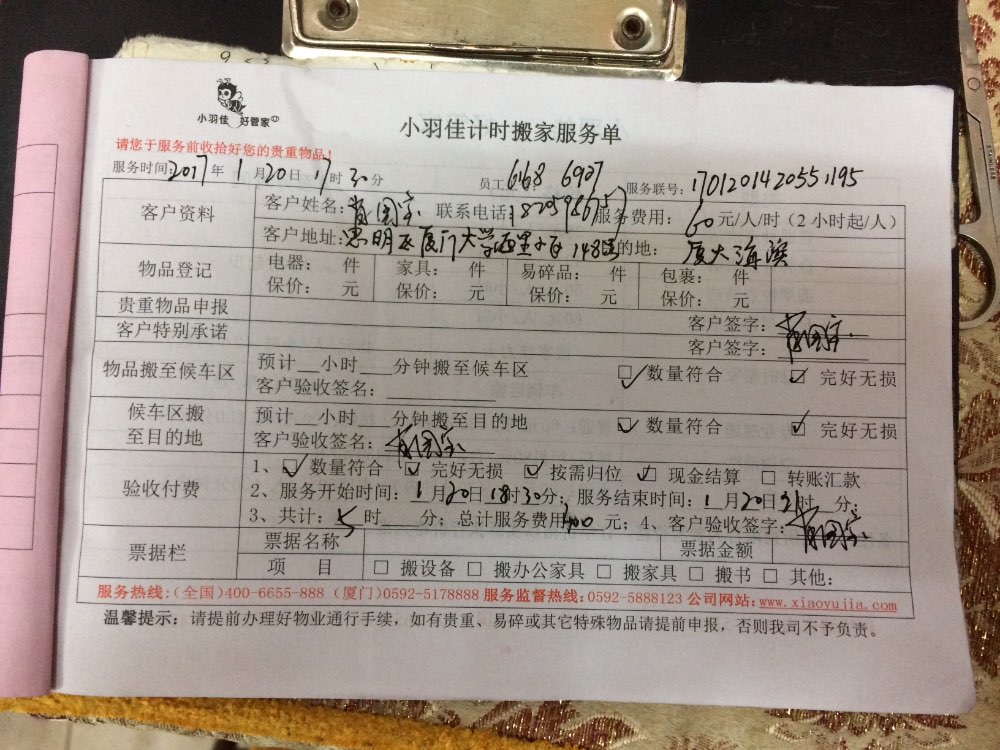 小羽佳 好管家
小羽佳计时搬家服务单
请您于服务前收拾好您的贵重物品!
服务时间:2017年1月20日17时30分 员工 6168 6907 服务联号:170120142055195
客户资料 客户姓名:肖国宗 联系电话: 服务费用: 60元/人/时(2小时起/人)
客户地址:思明区厦门大学西里小区148 的地: 厦大海滨
物品登记 电器: 件 家具: 件 易碎品: 件 包裹: 件
保价: 元 保价: 元 保价: 元 保价: 元
贵重物品申报 客户签字:
客户特别承诺 客户签字:肖国宗
物品搬至候车区 预计__小时___分钟搬至候车区 ☑数量符合 ☑ 完好无损
客户验收签名:
候车区搬至目的地 预计__小时___分钟搬至目的地 ☑ 数量符合 ☑ 完好无损
客户验收签名:肖国宗
验收付费 1、☑数量符合 ☑ 完好无损 ☑按需归位 ☑ 现金结算 □ 转账汇款
2、服务开始时间:1月20日18时30分; 服务结束时间:1月20日21时__分;
3、共计:5时___分; 总计服务费用 元; 4、客户验收签字:肖国宗
票据栏 票据名称 票据金额
项 目 □ 搬设备 □ 搬办公家具 □ 搬家具 □ 搬书 □ 其他:
服务热线:(全国)400-6655-888 (厦门)0592-5178888 服务监督热线:0592-5888123 公司网站:www.xiaoyujia.com
温馨提示:请提前办理好物业通行手续,如有贵重、易碎或其它特殊物品请提前申报,否则我司不予负责。